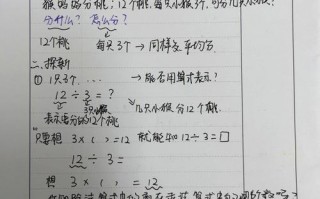 猴妈妈分桃：12个桃，每只小猴3个，可分几只小猴？
分什么？ 怎么分？
12个桃 每只3个 → 同样多 平均分
二、探新
① 1只3个…… → 能否用算式表示？
12 ÷ 3 = ?
3只 几只小猴分12个桃
表示要分的12个桃
只要想 3 × ( ) = 12 就能知 12 ÷ 3 = □
12 ÷ 3 =
想 3 × ( ) = 12